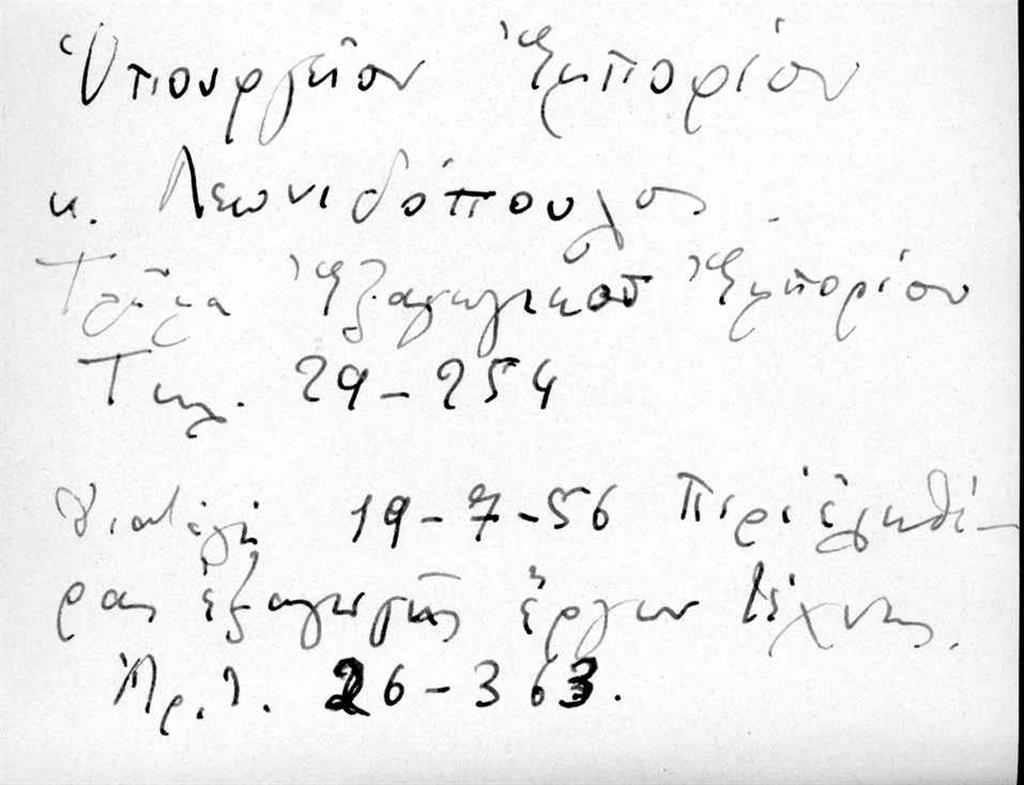 Ὑπουργεῖον Ἐμπορίου
κ. Λεωνιδόπουλος.
Τμῆμα Ἐξαγωγικοῦ Ἐμπορίου
Τηλ. 29-254
Διαταγὴ 19-7-56 περὶ ἐλευθέ-
ρας ἐξαγωγῆς ἔργων τέχνης.
Ἀρ. 26-363.